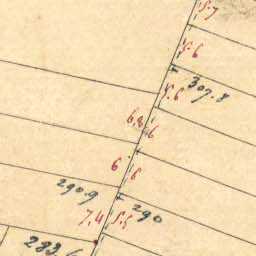 5.7
5.6
5.6 307.8
6.8 6
6 6
290.9
7.4 5.5 290
283.6